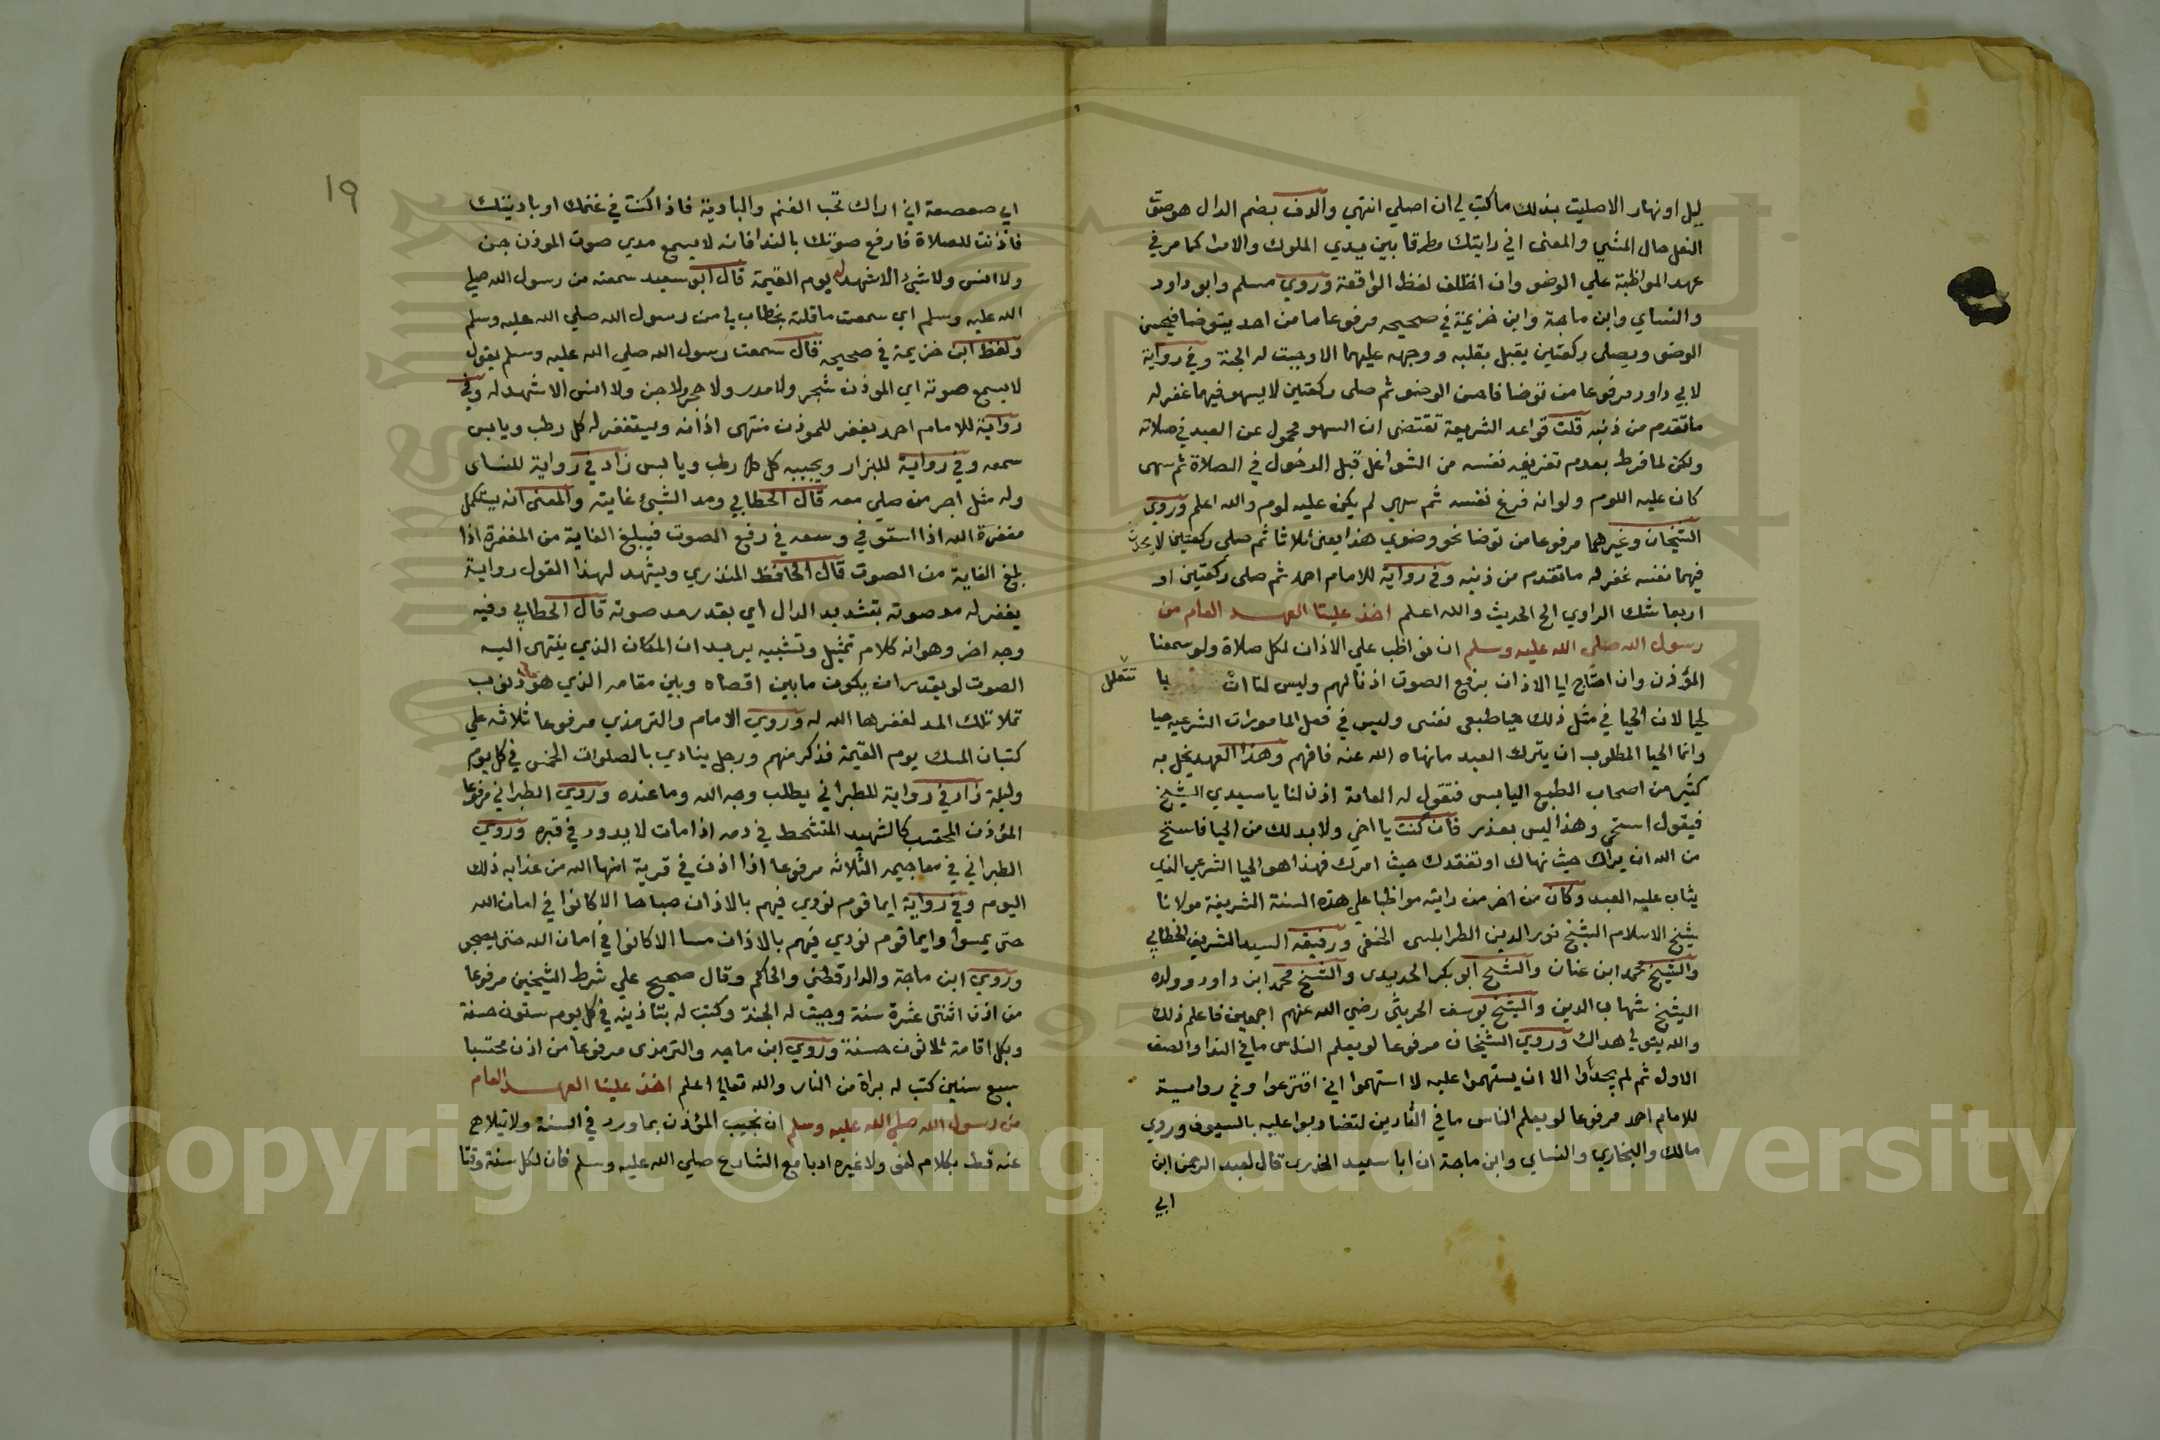 ليل او نهار الا صليت بذلك ما كتب لي ان اصلي انتهي والدف بضم الدال هو صوت
النعل حال المشي والمعنى اني رايتك مطرقا بين يدي الملوك والامرا كما مر في
عهد المواظبة علي الوضو وان اختلف لفظ الواقعة وروي مسلم وابو داود
والنساي وابن ماجة وابن خزيمة في صحيحه مرفوعا ما من احد يتوضا فيحسن
الوضو ويصلي ركعتين يقبل بقلبه ووجهه عليهما الا وجبت له الجنة وفي رواية
لابي داود مرفوعا من توضا فاحسن الوضو ثم صلى ركعتين لا يسهو فيهما غفر له
ما تقدم من ذنبه قلت قواعد الشريعة تقتضي ان السهو محمول عن العبد في صلاته
ولكن لما فرط بعدم تفريغ نفسه من الشواغل قبل الدخول في الصلاة ثم سهى
كان عليه اللوم ولو انه فرغ نفسه ثم سهي لم يكن عليه لوم والله اعلم وروي
الشيخان وغيرهما مرفوعا من توضا نحو وضوي هذا يعني ثلاثا ثم صلى ركعتين لا يحدث
فيهما نفسه غفر له ما تقدم من ذنبه وفي رواية للامام احمد ثم صلى ركعتين او
اربعا شك الراوي الخ الحديث والله اعلم اخذ علينا العهد العام من
رسول الله صلي الله عليه وسلم ان نواظب علي الاذان لكل صلاة ولو سمعنا
المؤذن وان احتاج ايا الاذان برفع الصوت اذنا لهم وليس لنا ان نتعلل با
لحيا لان الحيا في مثل ذلك حيا طبعي نفسي وليس في فعل المامورات الشرعيه حيا
وانما الحيا المطلوب ان يترك العبد ما نهاه الله عنه فافهم وهذا العهد يخل به
كثير من اصحاب الطبع اليابس فتقول له العامة اذن لنا يا سيدي الشيخ
فيقول استحي وهذا ليس بعذر فان كنت يا اخي ولا بد لك من الحيا فاستح
من الله ان يراك حيث نهاك او تفقدك حيث امرك فهذا هو الحيا الشرعي الذي
يثاب عليه العبد وكان من اخر من رايته مواظبا علي هذه السنة الشريفة مولانا
شيخ الاسلام الشيخ نور الدين الطرابلسي الحنفي ورفيقه السيد الشريف الخطابي
والشيخ محمد ابن عنان والشيخ ابو بكر الحديدي والشيخ محمد ابن داود وولده
الشيخ شهاب الدين والشيخ يوسف الحريثي رضي الله عنهم اجمعين فاعلم ذلك
والله يتولي هداك وروي الشيخان مرفوعا لو يعلم الناس ما في الندا والصف
الاول ثم لم يجدوا الا ان يستهموا عليه لا استهموا اي اقترعوا وفي رواية
للامام احمد مرفوعا لو يعلم الناس ما في التأذين لتضاربوا عليه بالسيوف وروي
مالك والبخاري والنساي وابن ماجة ان ابا سعيد الخدري قال لعبد الرحمن ابن
ابي
١٩
ابي صعصعة اني اراك تحب الغنم والبادية فاذا كنت في غنمك او باديتك
فاذنت للصلاة فارفع صوتك بالندا فانه لا يسمع مدي صوت الموذن جن
ولا انس ولا شيء الا شهد له يوم القيمة قال ابو سعيد سمعته من رسول الله صلي
الله عليه وسلم اي سمعت ما قلته بخطاب لي من رسول الله صلي الله عليه وسلم
ولفظ ابن خزيمة في صحيحه قال سمعت رسول الله صلي الله عليه وسلم يقول
لا يسمع صوته اي الموذن شجر ولا مدر ولا حجر ولا جن ولا انس الا شهد له وفي
رواية للامام احمد يغفر للموذن منتهى اذانه ويستغفر له كل رطب ويابس
سمعه وفي رواية للبزار ويجيبه كل رطب ويابس زاد في رواية للنساى
وله مثل اجر من صلي معه قال الخطابي ومد الشيئ غايته والمعنى انه يستكمل
مغفرة الله اذا استوفي وسعه في رفع الصوت فيبلغ الغاية من المغفرة اذا
بلغ الغاية من الصوت قال الحافظ المنذري ويشهد لهذا القول رواية
يغفر له مد صوته بتشديد الدال اي بقدر مد صوته قال الخطابي وفيه
وجه اخر وهو انه كلام تمثيل وتشبيه يريد ان المكان الذي ينتهي اليه
الصوت لو يقدر ان يكون ما بين اقصاه وبين مقامه الذي هو فيه ذنوب
تملا تلك المد لغفرها الله له وروي الامام والترمذي مرفوعا ثلاثه علي
كثبان المسك يوم القيمة فذكر منهم ورجل ينادي بالصلوات الخمس في كل يوم
وليلة زاد في رواية للطبراني يطلب وجه الله وما عنده وروي الطبراني مرفوعا
المؤذن المحتسب كالشهيد المتشحط في دمه اذا مات لا يدود في قبره وروي
الطبراني في معاجيمه الثلاثه مرفوعا اذا اذن في قرية امنها الله من عذابه ذلك
اليوم وفي رواية ايما قوم نودي فيهم بالاذان صباحا الا كانوا في امان الله
حتى يمسوا وايما قوم نودي فيهم بالاذان مسا الا كانوا في امان الله حتى يصبحوا
وروي ابن ماجة والدارقطني والحاكم وقال صحيح علي شرط الشيخين مرفوعا
من اذن اثنتي عشرة سنة وجبت له الجنة وكتب له بتاذينه في كل يوم ستون حسنة
وبكل اقامة ثلاثون حسنة وروي ابن ماجه والترمذي مرفوعا من اذن محتسبا
سبع سنين كتب له براة من النار والله تعالي اعلم اخذ علينا العهد العام
من رسول الله صلي الله عليه وسلم ان نجيب المؤذن بما ورد في السنة ولا نتلاهي
عنه قط بكلام لغو ولا غيره ادبا مع الشارع صلي الله عليه وسلم فان لكل سنة وقتا
Copyright © King Saud University